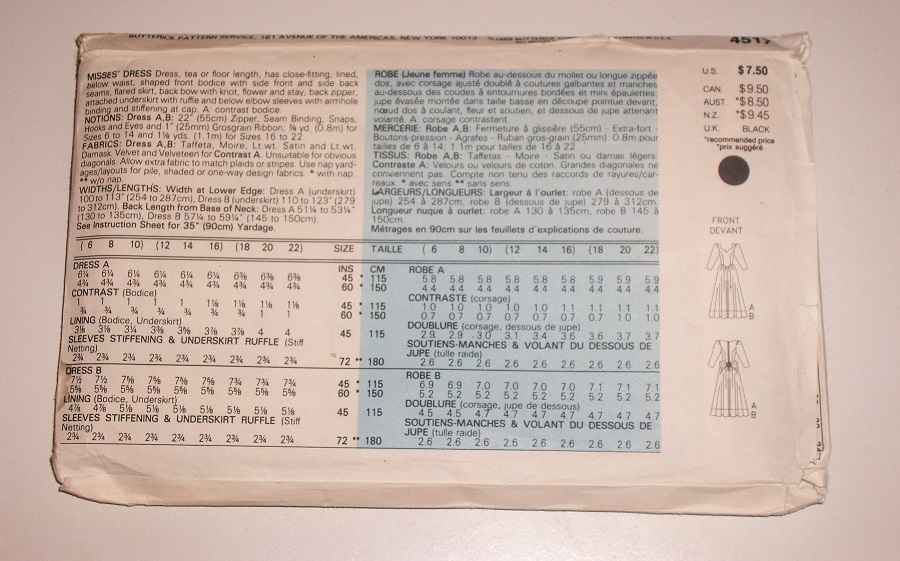 BUTTERICK PATTERN SERVICE, 161 AVENUE OF THE AMERICAS, NEW YORK
4517
MISSES' DRESS Dress, tea or floor length, has close-fitting, lined,
below waist, shaped front bodice with side front and side back
seams, flared skirt, back bow with knot, flower and stay, back zipper,
attached underskirt with ruffle and below elbow sleeves with armhole
binding and stiffening at cap. A contrast bodice
NOTIONS: Dress A,B: 22" (55cm) Zipper, Seam Binding, Snaps,
Hooks and Eyes and 1" (25mm) Grosgrain Ribbon; ⅞ yd. (0.8m) for
Sizes 6 to 14 and 1⅛ yds. (1.1m) for Sizes 16 to 22.
FABRICS: Dress A,B: Taffeta, Moire, Lt.wt. Satin and Lt.wt.
Damask. Velvet and Velveteen for Contrast A. Unsuitable for obvious
diagonals. Allow extra fabric to match plaids or stripes. Use nap yard-
ages/layouts for pile, shaded or one-way design fabrics. * with nap.
** w/o nap.
WIDTHS/LENGTHS: Width at Lower Edge: Dress A (underskirt)
100 to 113" (254 to 287cm), Dress B (underskirt) 110 to 123" (279
to 312cm). Back Length from Base of Neck: Dress A 51¼ to 53¼"
(130 to 135cm), Dress B 57¼ to 59¼" (145 to 150cm).
See Instruction Sheet for 35" (90cm) Yardage.
ROBE (Jeune femme) Robe au-dessous du mollet ou longue zippée
dos, avec corsage ajusté doublé à coutures galbantes et manches
au-dessous des coudes à entournures bordées et mini épaulettes,
jupe évasée montée dans taille basse en découpe pointue devant,
nœud dos à coulant, fleur et soutien, et dessous de jupe attenant
volanté. A: corsage contrastant.
MERCERIE: Robe A,B: Fermeture à glissière (55cm) - Extra-fort -
Boutons-pression - Agrafes - Ruban gros-grain (25mm) 0.8m pour
tailles de 6 à 14; 1.1m pour tailles de 16 à 22.
TISSUS: Robe A,B: Taffetas - Moire - Satin ou damas légers.
Contraste A: Velours ou velours de coton. Grandes diagonales ne
conviennent pas. Compte non tenu des raccords de rayures/car-
reaux. * avec sens ** sans sens.
LARGEURS/LONGUEURS: Largeur à l'ourlet: robe A (dessous de
jupe) 254 à 287cm, robe B (dessous de jupe) 279 à 312cm.
Longueur nuque à ourlet: robe A 130 à 135cm, robe B 145 à
150cm.
Métrages en 90cm sur les feuilles d'explications de couture.
U.S. $7.50
CAN $9.50
AUST *$8.50
N.Z. *$9.45
U.K. BLACK
*recommended price
*prix suggéré
FRONT
DEVANT
A
B
A
B
( 6 8 10) (12 14 16) (18 20 22) SIZE TAILLE ( 6 8 10) (12 14 16) (18 20 22)
DRESS A INS CM ROBE A
6¼ 6¼ 6¼ 6¼ 6¼ 6¼ 6⅜ 6⅜ 6⅜ 45 * 115 5.8 5.8 5.8 5.8 5.8 5.8 5.9 5.9 5.9
4¾ 4¾ 4¾ 4¾ 4¾ 4¾ 4¾ 4¾ 4¾ 60 * 150 4.4 4.4 4.4 4.4 4.4 4.4 4.4 4.4 4.4
CONTRAST (Bodice) CONTRASTE (corsage)
1 1 1 1 1 1⅛ 1⅛ 1⅛ 1⅛ 45 * 115 1.0 1.0 1.0 1.0 1.0 1.1 1.1 1.1 1.1
¾ ¾ ¾ ¾ ¾ ¾ ¾ 1 1 60 * 150 0.7 0.7 0.7 0.7 0.7 0.7 0.7 1.0 1.0
LINING (Bodice, Underskirt) DOUBLURE (corsage, dessous de jupe)
3⅛ 3⅛ 3¼ 3⅜ 3⅝ 3⅞ 3⅞ 4 4 45 115 2.9 2.9 3.0 3.1 3.4 3.6 3.6 3.7 3.7
SLEEVES STIFFENING & UNDERSKIRT RUFFLE (Stiff
Netting)
SOUTIENS-MANCHES & VOLANT DU DESSOUS DE
JUPE (tulle raide)
2¾ 2¾ 2¾ 2¾ 2¾ 2¾ 2¾ 2¾ 2¾ 72 ** 180 2.6 2.6 2.6 2.6 2.6 2.6 2.6 2.6 2.6
DRESS B ROBE B
7½ 7½ 7⅝ 7⅝ 7⅝ 7⅝ 7¾ 7¾ 7¾ 45 * 115 6.9 6.9 7.0 7.0 7.0 7.0 7.1 7.1 7.1
5⅝ 5⅝ 5⅝ 5⅝ 5⅝ 5⅝ 5⅝ 5⅝ 5⅝ 60 * 150 5.2 5.2 5.2 5.2 5.2 5.2 5.2 5.2 5.2
LINING (Bodice, Underskirt) DOUBLURE (corsage, jupe de dessous)
4⅞ 4⅞ 5⅛ 5⅛ 5⅛ 5⅛ 5⅛ 5⅛ 5⅛ 45 115 4.5 4.5 4.7 4.7 4.7 4.7 4.7 4.7 4.7
SLEEVES STIFFENING & UNDERSKIRT RUFFLE (Stiff
Netting)
SOUTIENS-MANCHES & VOLANT DU DESSOUS DE
JUPE (tulle raide)
2¾ 2¾ 2¾ 2¾ 2¾ 2¾ 2¾ 2¾ 2¾ 72 ** 180 2.6 2.6 2.6 2.6 2.6 2.6 2.6 2.6 2.6